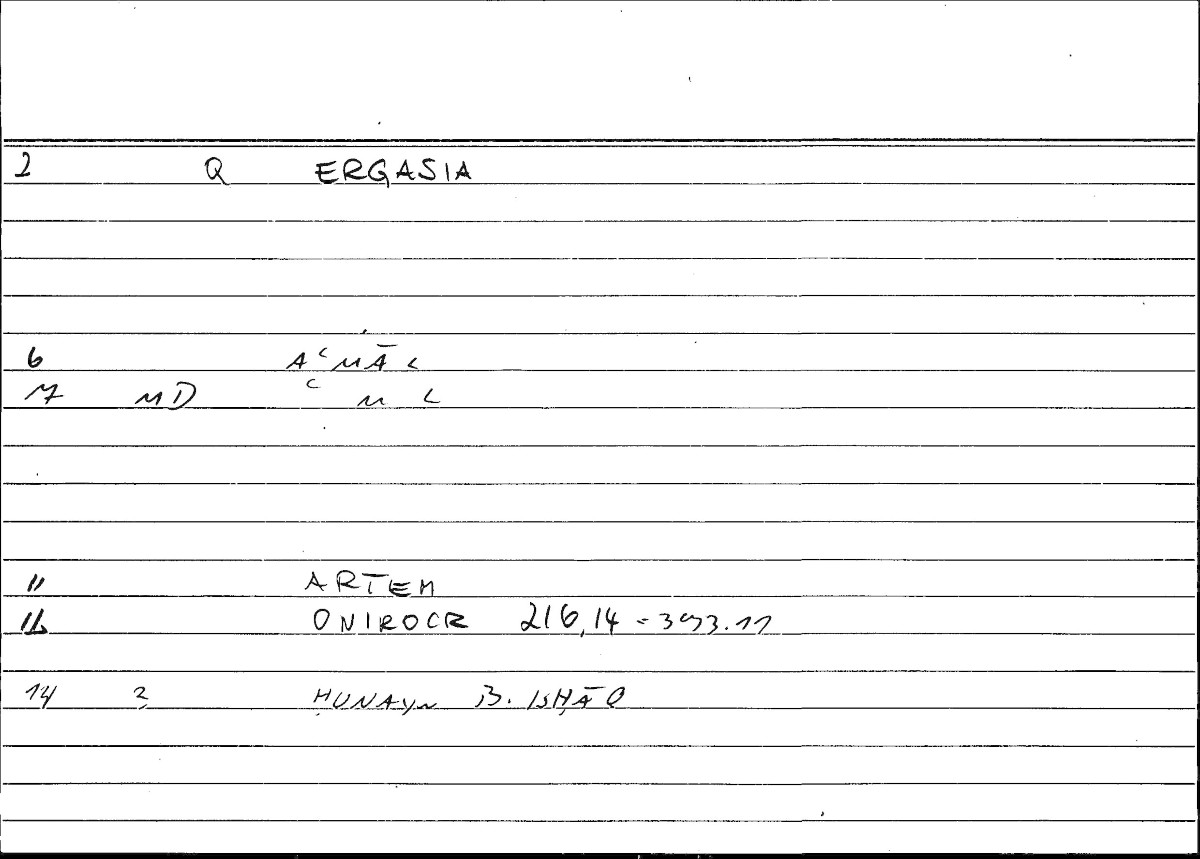 2 Q ERGASIA
6 AʿMĀL
7 MD ʿ M L
11 ARTEM
12 ONIROCR 216,14 = 393.11
14 2 ḤUNAYN B. ISḤĀQ